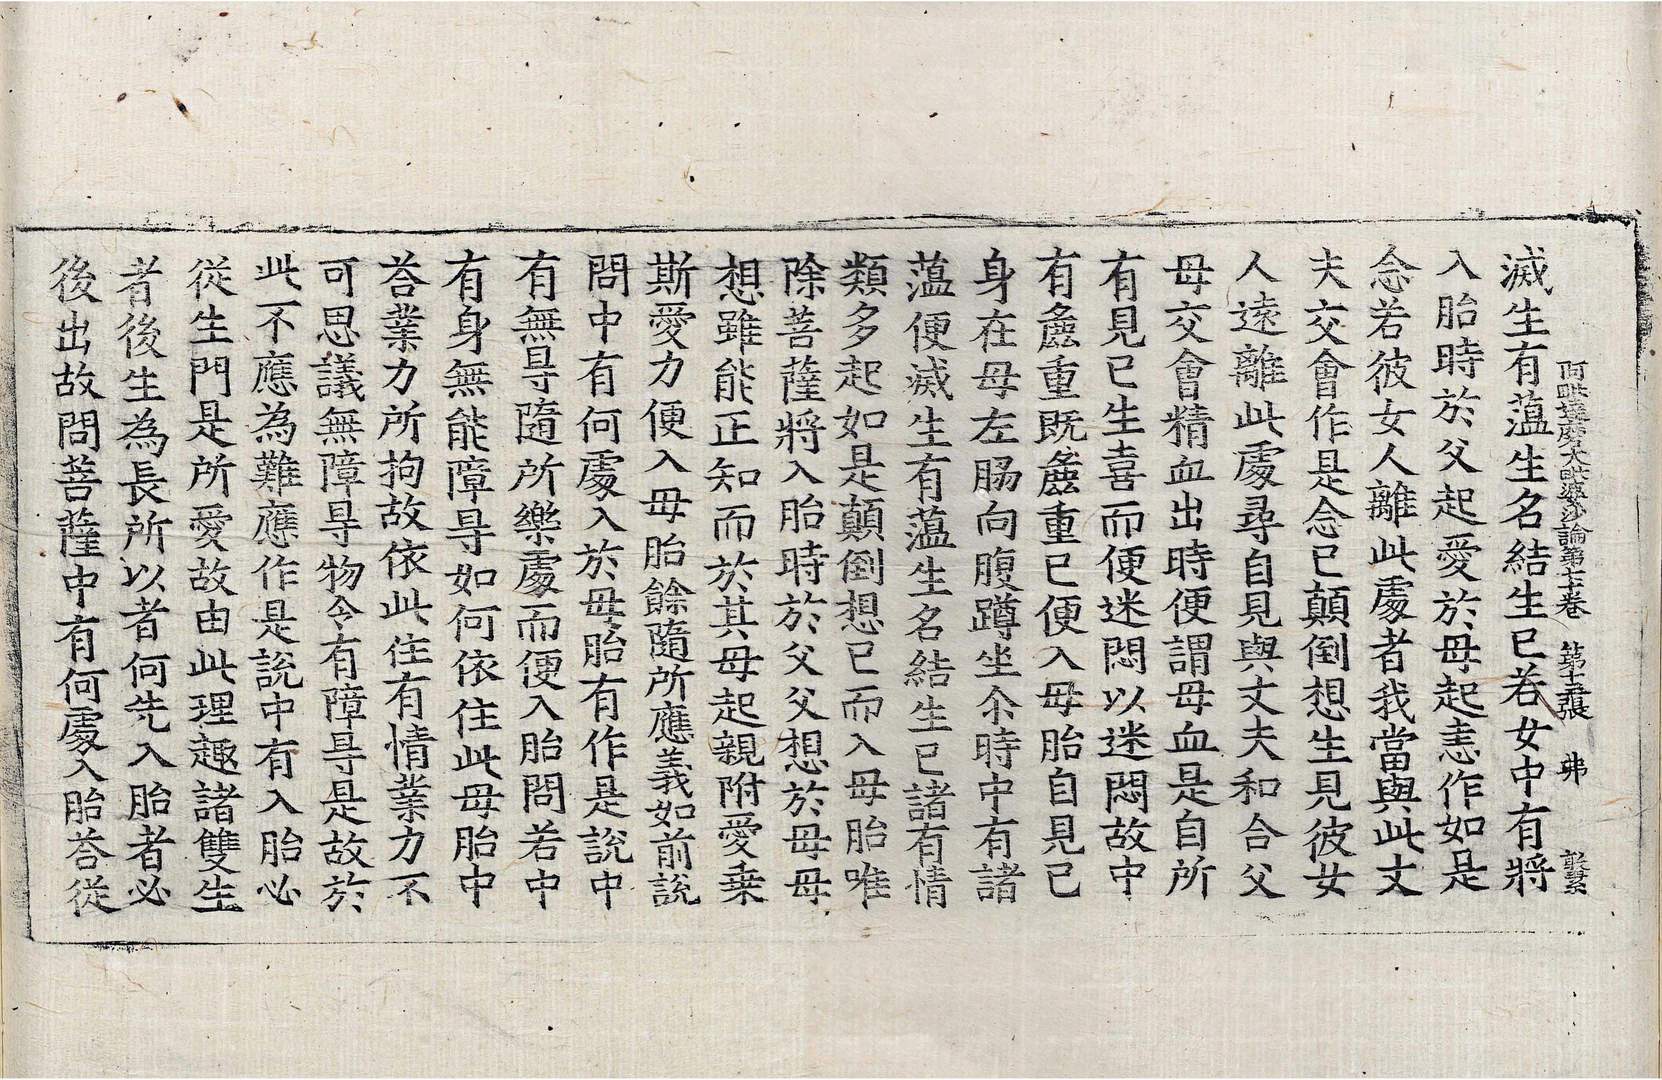 阿毗達磨大毗婆沙論第七十卷 張 弗
滅生有薀生名結生已若女中有將
入胎時於父起愛於母起恚作如是
念若彼女人離此處者我當與此丈
夫交會作是念已顛倒想生見彼女
人遠離此處尋自見與丈夫和合父
母交會精血出時便謂母血是自所
有見已生喜而便迷悶以迷悶故中
有麁重既麁重已便入母胎自見已
身在母左脇向腹蹲坐尒時中有諸
薀便滅生有薀生名結生已諸有情
類多起如是顛倒想已而入母胎唯
除菩薩將入胎時於父父想於母母
想雖能正知而於其母起親附愛乗
斯愛力便入母胎餘隨所應義如前說
問中有何處入於母胎有作是說中
有無㝵隨所樂處而便入胎問若中
有身無能障㝵如何依住此母胎中
荅業力所拘故依此住有情業力不
可思議無障㝵物令有障㝵是故於
此不應為難應作是說中有入胎必
從生門是所愛故由此理趣諸雙生
者後生為長所以者何先入胎者必
後出故問菩薩中有何處入胎荅從